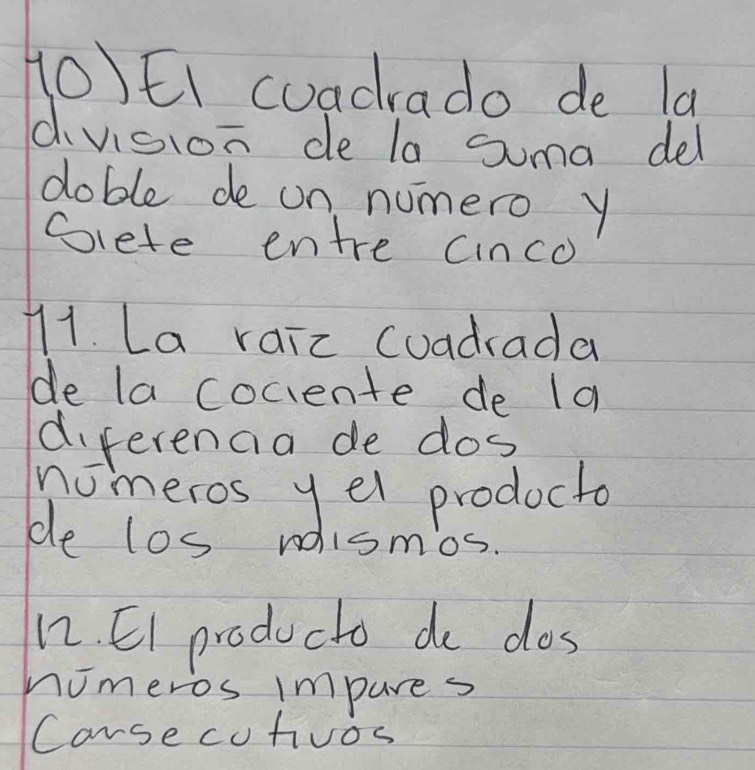 10) El cuadrado de la
división de la suma del
doble de un número y
Siete entre cinco
11. La raíz cuadrada
de la cociente de la
diferencia de dos
números y el producto
de los mismos.
12. El producto de dos
números impares
Consecutivos